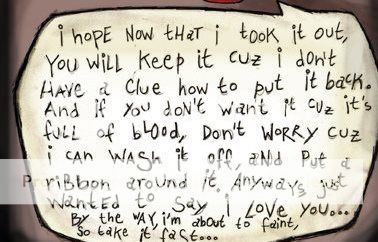 i hope Now tHaT i took it out,
You will keep it cuz i don't
Have a clue how to put it back.
And if You doN't want it cuz it's
full of blood, Don't WoRRY cuz
i can wash it off, and Put a
ribbon around it. Anyways just
wanted to say i Love you...
By the way, i'm about to faint,
So take it fast...